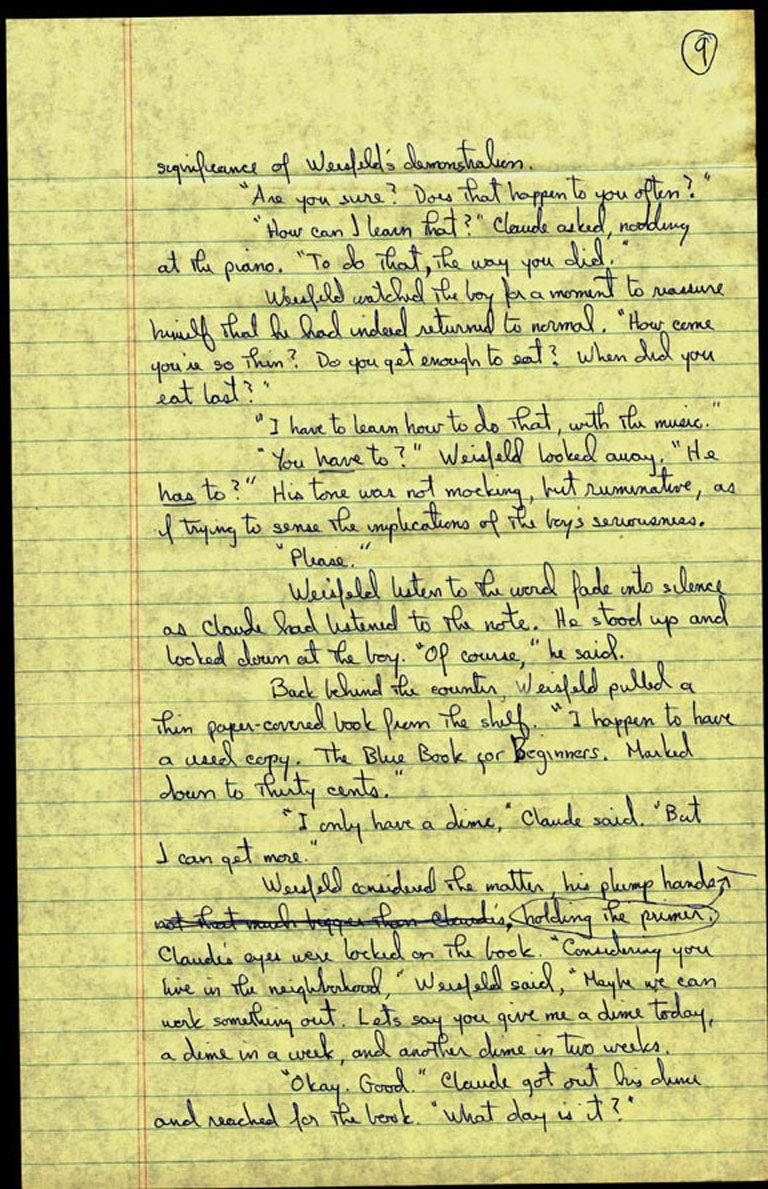 9
significance of Weisfeld's demonstration.
"Are you sure? Does that happen to you often?"
"How can I learn that?" Claude asked, nodding
at the piano. "To do that, the way you did."
Weisfeld watched the boy for a moment to reassure
himself that he had indeed returned to normal. "How come
you're so thin? Do you get enough to eat? When did you
eat last?"
"I have to learn how to do that, with the music."
"You have to?" Weisfeld looked away. "He
has to?" His tone was not mocking, but ruminative, as
if trying to sense the implications of the boy's seriousness.
"Please."
Weisfeld listen to the word fade into silence
as Claude had listened to the note. He stood up and
looked down at the boy. "Of course," he said.
Back behind the counter, Weisfeld pulled a
thin paper-covered book from the shelf. "I happen to have
a used copy. The Blue Book for Beginners. Marked
down to thirty cents."
"I only have a dime," Claude said. "But
I can get more."
Weisfeld considered the matter, his plump hands
not that much bigger than Claude's, holding the primer.
Claude's eyes were locked on the book. "Considering you
live in the neighborhood," Weisfeld said, "Maybe we can
work something out. Lets say you give me a dime today,
a dime in a week, and another dime in two weeks.
"Okay. Good." Claude got out his dime
and reached for the book. "What day is it?"